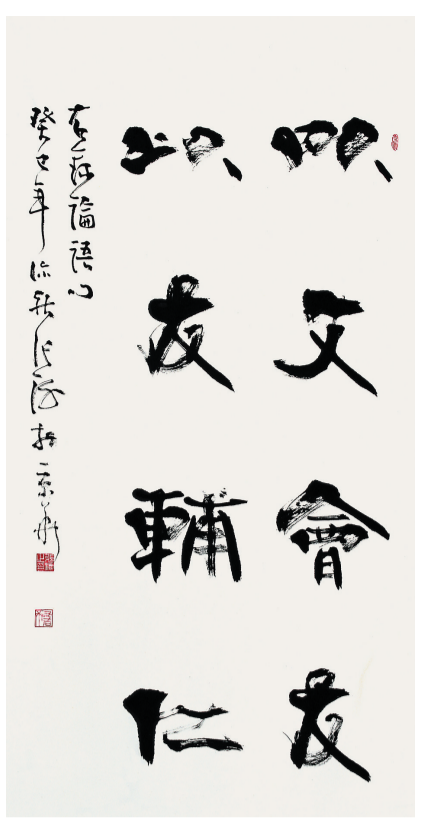 以文會友
以友輔仁
右録論語句
癸巳年